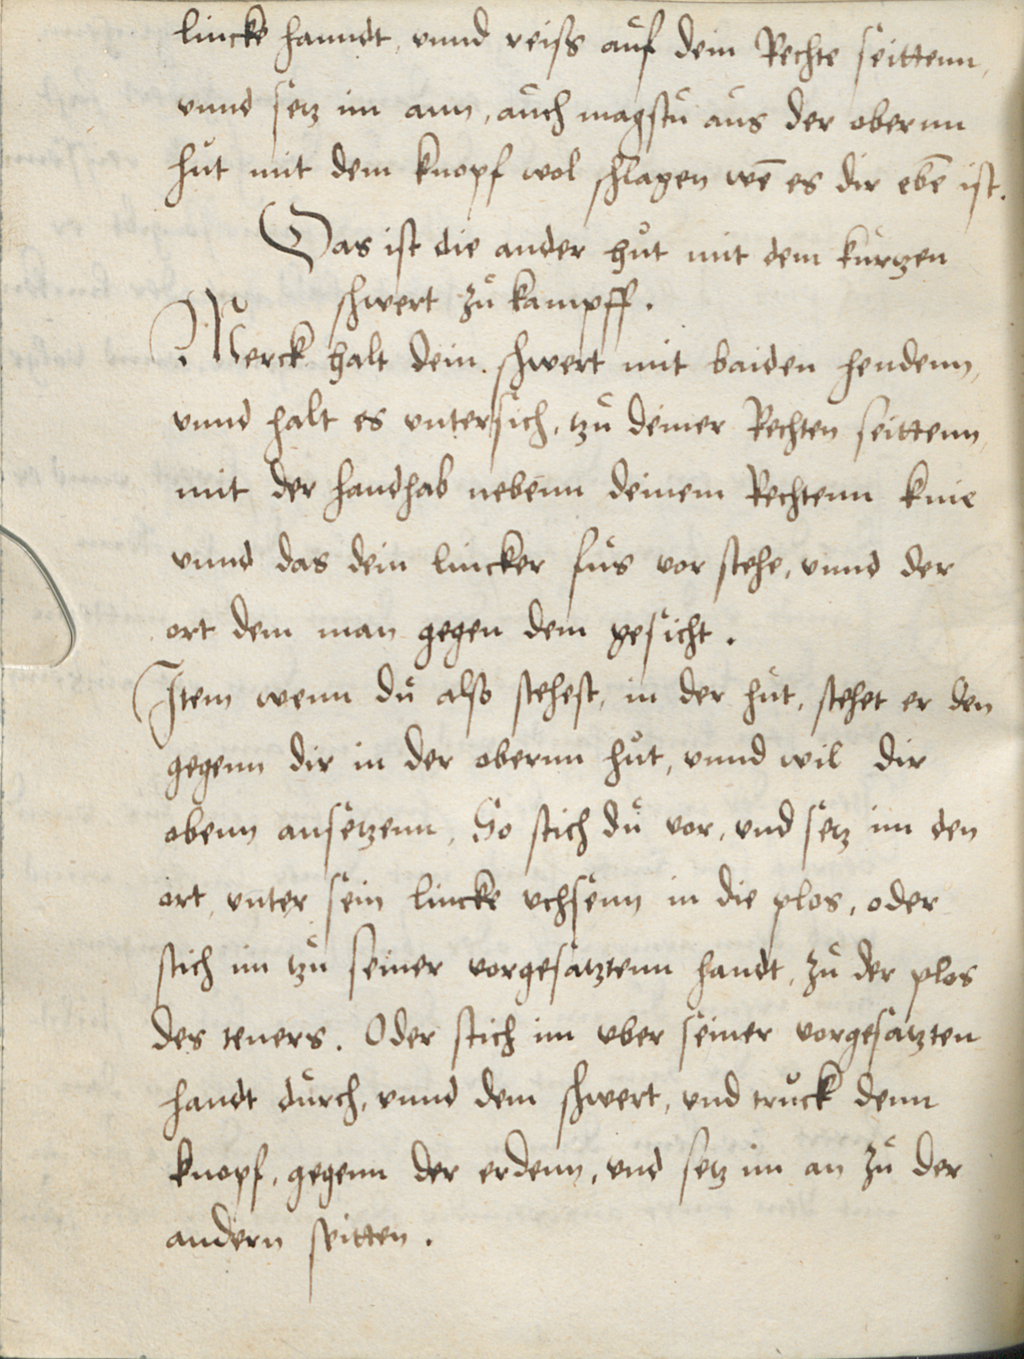 lincke hanndt, vnnd reiss auf dein Rechte seittenn,
vnnd setz im ann, auch magstu aus der obernn
hut mit dem knopf wol schlagen wē es dir ebē ist.
Das ist die ander hut mit dem kurtzen
schwert zu kampff.
Merck halt dein schwert mit baiden hendenn,
vnnd halt es untersich, tzu deiner Rechten seittenn,
mit der handhab nebenn deinem Rechtenn knie
vnnd das dein lincker fus vor stehe, vnnd der
ort dem man gegen dem gesicht.
Item wenn du also stehest, in der hut, stehet er den
gegenn dir in der obernn hut, vnnd wil dir
obenn ansetzenn, So stich du vor, vnd setz im den
ort, vnter sein lincke vchsenn in die plos, oder
stich im tzu seiner vorgesatztenn handt, zu der plos
des teners. Oder stich im vber seiner vorgesatzten
handt durch, vnnd dem schwert, vnd truck denn
knopf, gegenn der erdenn, vnd setz im an zu der
andern seitten.